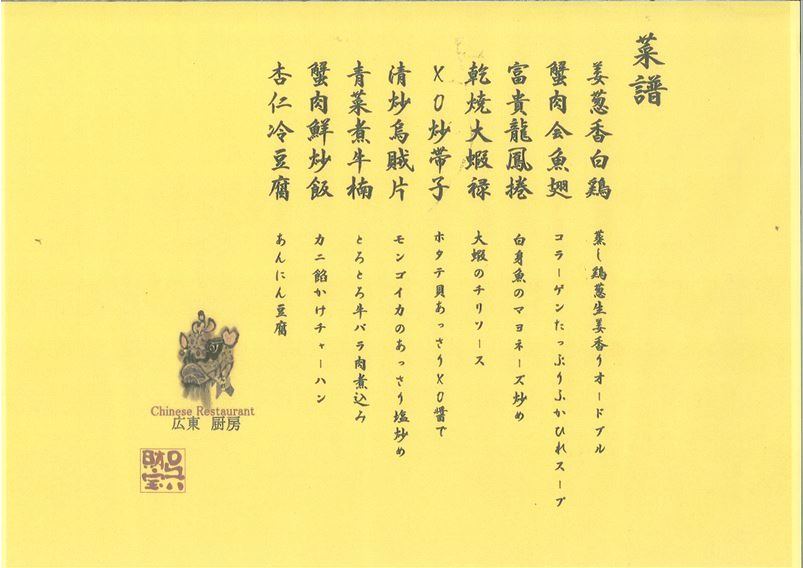 菜譜
姜葱香白鶏
蒸し鶏葱生姜香りオードブル
蟹肉会魚翅
コラーゲンたっぷりふかひれスープ
富貴龍鳳捲
白身魚のマヨネーズ炒め
乾焼大蝦禄
大蝦のチリソース
XO炒帯子
ホタテ貝あっさりXO醤で
清炒烏賊片
モンゴイカのあっさり塩炒め
青菜煮牛楠
とろとろ牛バラ肉煮込み
蟹肉鮮炒飯
カニ餡かけチャーハン
杏仁冷豆腐
あんにん豆腐
Chinese Restaurant
広東 厨房